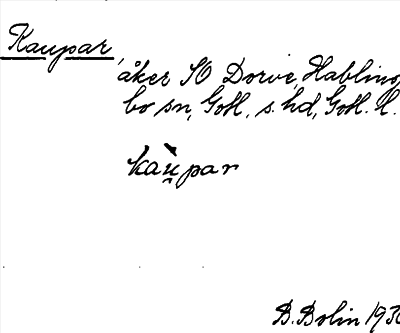 Kaupar,
åker SO Dorvie, Habling-
bo sn, Gotl. s. hd, Gotl. l.
kaù̯par
B. Bolin 193